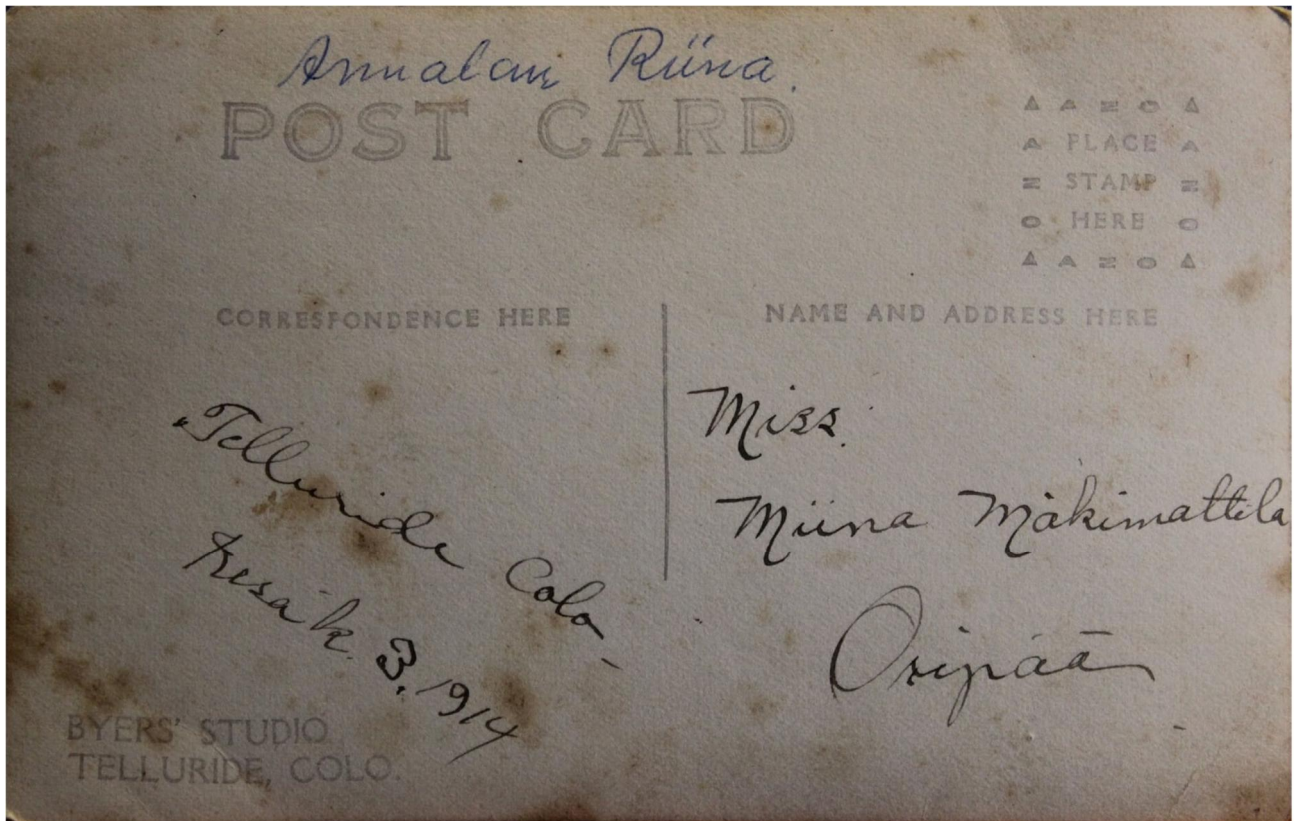 Annalan Riina.
POST CARD
AAZOA
A PLACE A
Z STAMP Z
O HERE O
AAZOA
CORRESPONDENCE HERE
NAME AND ADDRESS HERE
Telluride Colo-
Kesäk. 3. 1914
Miss.
Miina Mäkimattila
Oripää
BYERS' STUDIO
TELLURIDE, COLO.